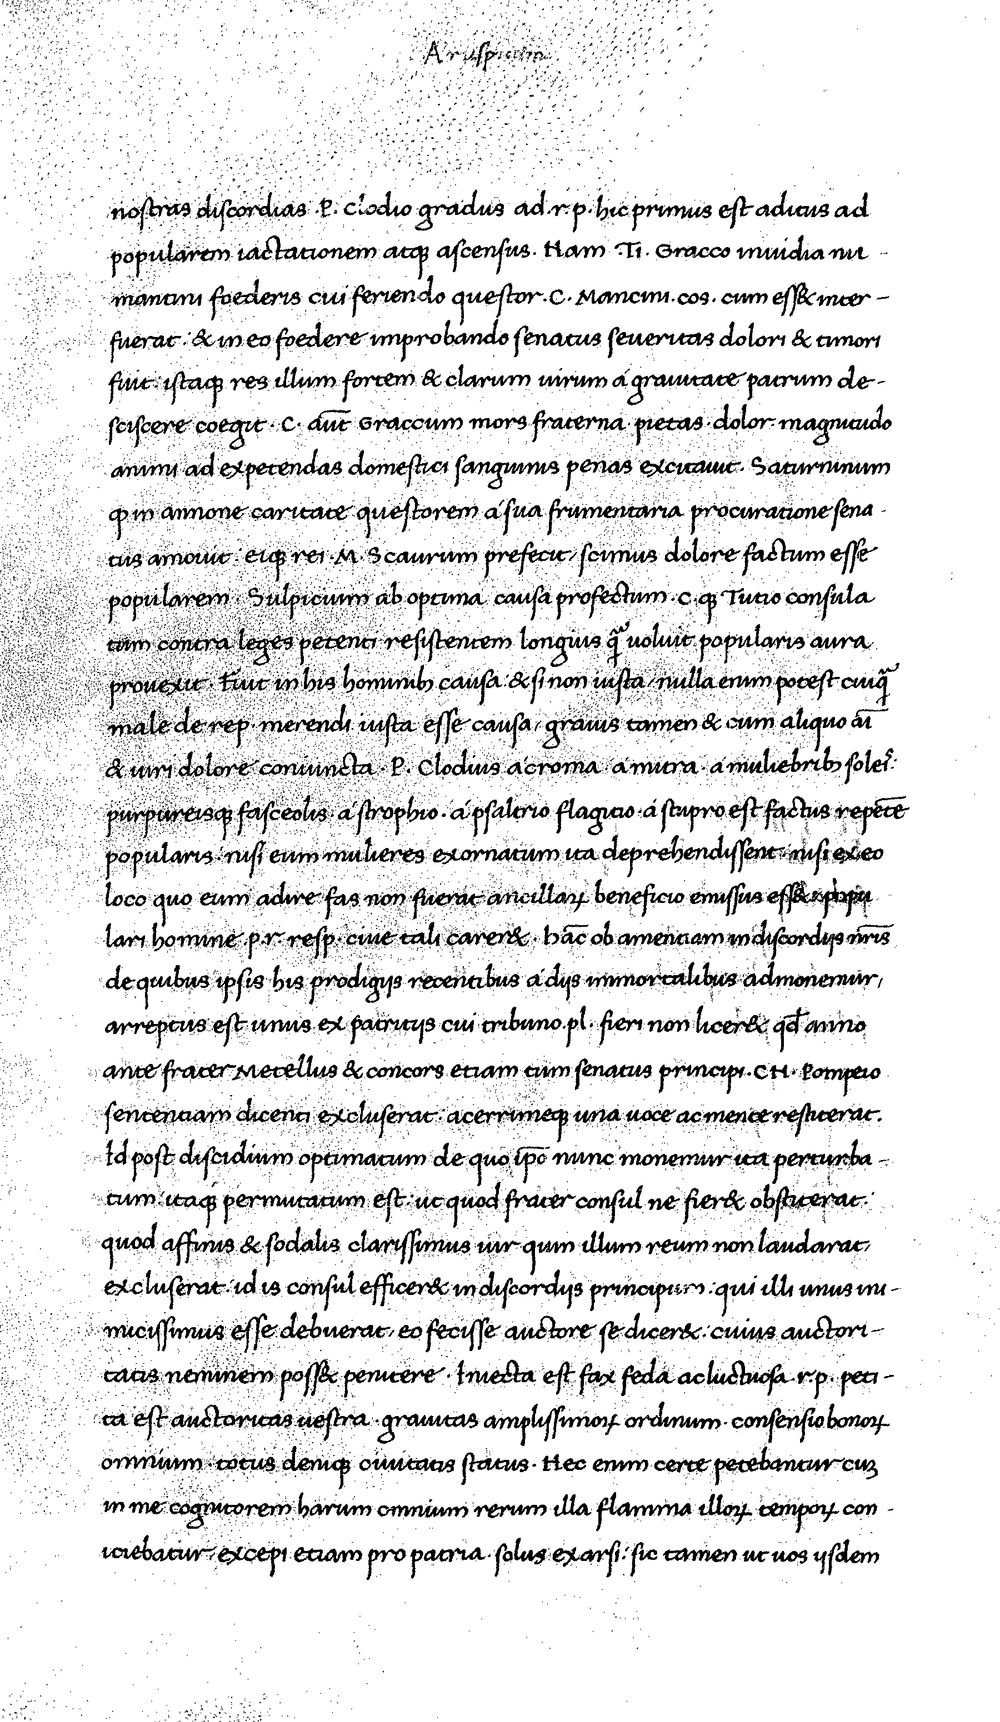 Aruspicum
nostras discordias. P. Clodio gradus ad .r.p. hic primus est aditus ad
popularem iactationem atq; ascensus. Nam .Ti. Gracco inuidia nu -
mantini foederis cui feriendo questor .C. Mancini .cos. cum ess& inter -
fuerat : & in eo foedere improbando senatus seueritas dolori & timori
fuit: istaq; res illum fortem & clarum uirum a grauitate patrum de -
sciscere coegit . C. aūt Graccum mors fraterna pietas dolor magnitudo
animi ad expetendas domestici sanguinis penas excitauit . Saturninum
ꝙ in annone caritate questorem a sua frumentaria procuratione sena -
tus amouit eiq; rei .M. Scaurum prefecit, scimus dolore factum esse
popularem . Sulpicium ab optima causa profectum .C. q; Tutio consula
tum contra leges petenti resistentem longius q̃ uoluit popularis aura
prouexit . Fuit in his hominib; causa & si non iusta, nulla enim potest cuiq̃
male de rep. merendi iusta esse causa, grauis tamen & cum aliquo ai̅
& uiri dolore coniuncta . P. Clodius a croma a mitra . a muliebrib; solei̅s:
purpureisq; fasceolis . a strophio . a psalterio flagitio a stupro est factus repe̅te
popularis . nisi eum mulieres exornatum ita deprehendissent: nisi ex eo
loco quo eum adire fas non fuerat ancillaꝝ beneficio emissus ess& popu
lari homine p.r. resp. ciue tali carer& . hāc ob amentiam in discordijs nr̅is
de quibus ipsis his prodigijs recentibus a dijs immortalibus admonemur,
arreptus est unus ex patritijs cui tribuno .pl. fieri non licer& qd̅ anno
ante frater Metellus & concors etiam tum senatus principi .CN. Pompeio
sententiam dicenti excluserat acerrimeq; una uoce ac mente restiterat.
Id post discidium optimatum de quo ip̅o nunc monemur ita perturba -
tum itaq; permutatum est: ut quod frater consul ne fier& obstiterat:
quod affinis & sodalis clarissimus uir qum illum reum non laudarat,
excluserat: id is consul efficer& in discordijs principum . qui illi unus ini -
micissimus esse debuerat, eo fecisse auctore se dicer& . cuius auctori -
tatis neminem poss& penitere . Inuecta est fax feda ac luctuosa .r.p. peti -
ta est auctoritas uestra grauitas amplissimoꝝ ordinum . consensio bonoꝝ
omnium totus deniq; ciuitatis status . Hec enim certe petebantur cuꝫ
in me cognitorem harum omnium rerum illa flamma illoꝝ tempoꝝ con -
iciebatur, excepi etiam pro patria . solus exarsi: sic tamen ut uos ijsdem